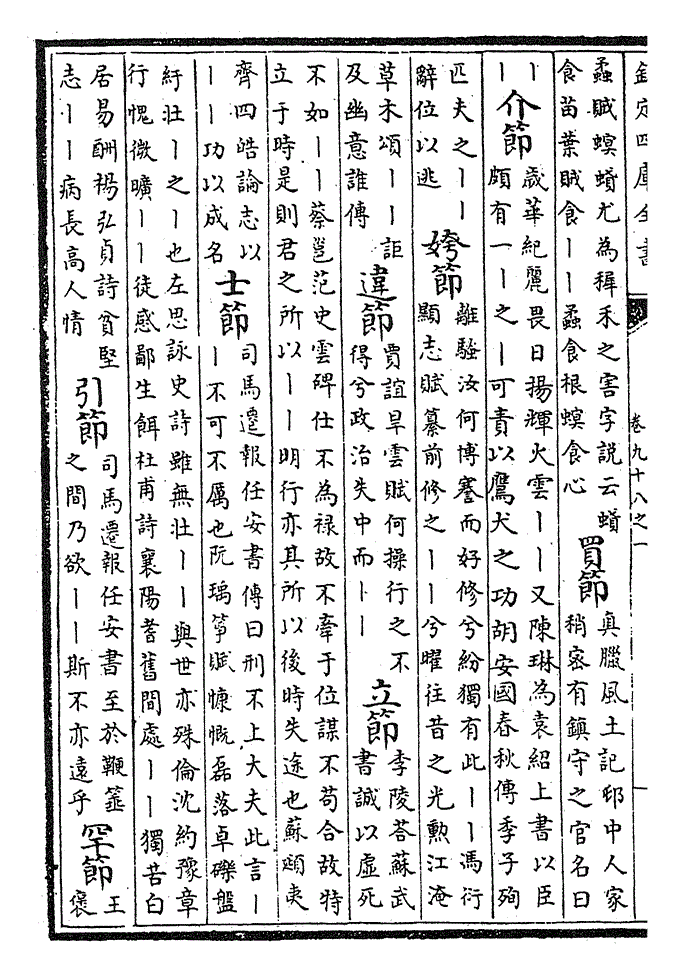 欽定四庫全書 卷九十八之一 一
蟊賊螟螣尤為稺禾之害字說云螣
食苗葉賊食丨丨蟊食根螟食心
買節
真臘風土記邨中人家
稍密有鎮守之官名曰
丨
丨
介節
歲華紀麗畏日揚輝火雲丨丨又陳琳為袁紹上書以臣
頗有一丨之丨可責以鷹犬之功胡安國春秋傳季子殉
匹夫之丨丨
辭位以逃
姱節
離騷汝何博謇而好修兮紛獨有此丨丨馮衍
顯志賦纂前修之丨丨兮曜往昔之光勲江淹
草木頌丨丨詎
及幽意誰傳
違節
賈誼旱雲賦何操行之不
得兮政治失中而丨丨
立節
李陵荅蘇武
書誠以虚死
不如丨丨蔡邕范史雲碑仕不為禄故不牽于位謀不苟合故特
立于時是則君之所以丨丨明行亦其所以後時失途也蘇頲夷
齊四皓論志以
丨丨功以成名
士節
司馬遷報任安書傳曰刑不上大夫此言丨
丨不可不厲也阮瑀箏賦慷慨磊落卓礫盤
紆壯丨之丨也左思詠史詩雖無壯丨丨與世亦殊倫沈約豫章
行愧微曠丨丨徒惑鄙生餌杜甫詩襄陽耆舊間處丨丨獨苦白
居易酬楊弘貞詩貧堅
志丨丨病長高人情
引節
司馬遷報任安書至於鞭箠
之間乃欲丨丨斯不亦遠乎
罕節
王
褒